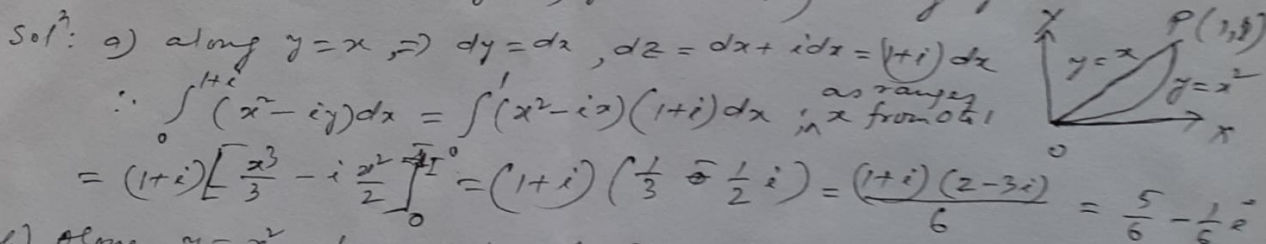 Solⁿ: a) along y = x, ⇒ dy = dx, dz = dx + idx = (1+i) dx
∴ ∫₀^{1+i} (x² - iy) dx = ∫₀^{1} (x² - ix)(1+i) dx ; as ranges in x from 0 to 1
= (1+i) [x³/3 - i x²/2]₀^{1} = (1+i) (1/3 - 1/2 i) = (1+i)(2-3i)/6 = 5/6 - 1/6 i
Y
y = x
y = x²
X
O